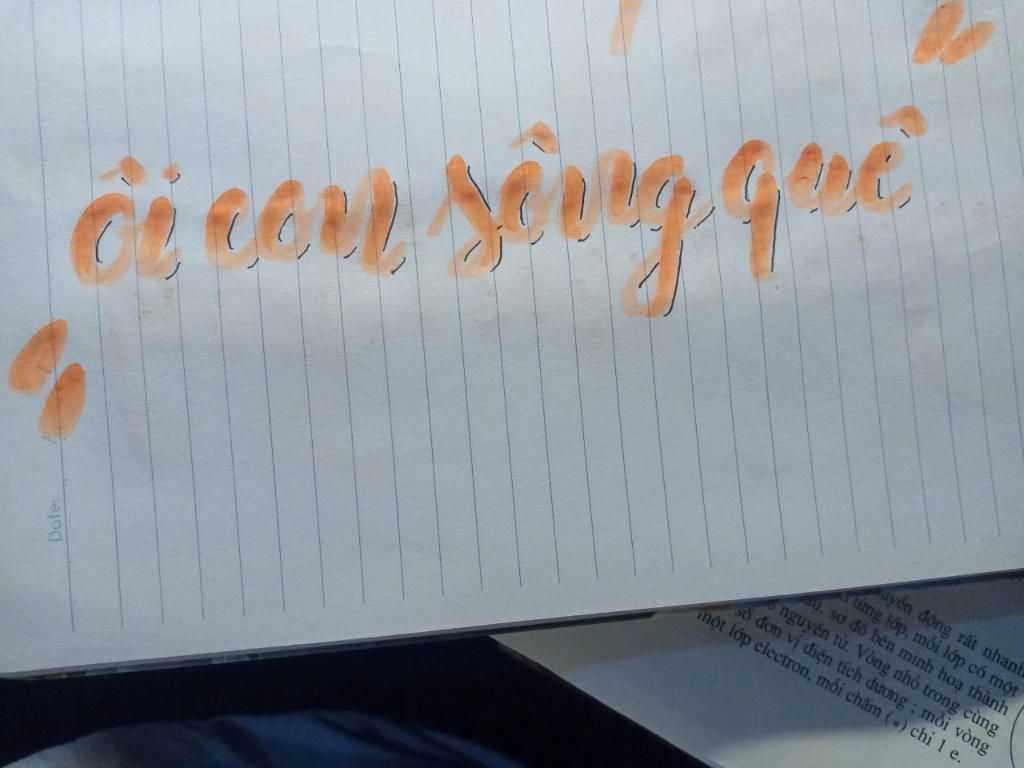 "ôi con sông quê"
Date:
động rất nhanh
từng lớp, mỗi lớp có một
sơ đồ bên minh hoạ thành
nguyên tử. Vòng nhỏ trong cùng
số đơn vị điện tích dương ; mỗi vòng
một lớp electron, mỗi chấm (•) chỉ 1 e.